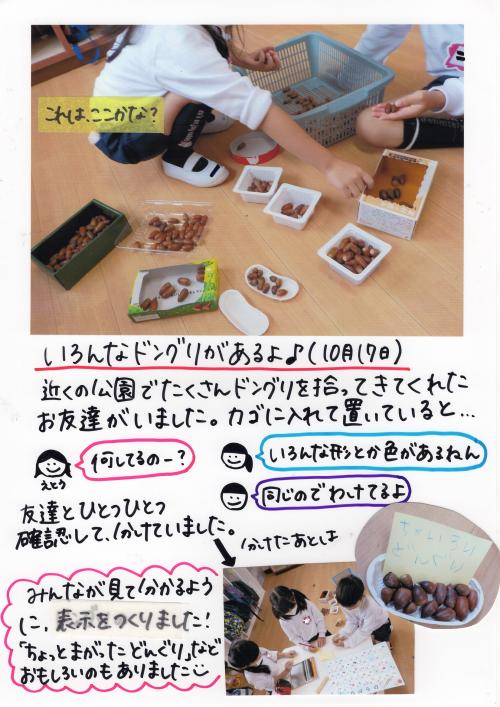 これは、ここかな？
いろんなドングリがあるよ♪(10月17日)
近くの公園でたくさんドングリを拾ってきてくれた
お友達がいました。カゴに入れて置いていると…
何してるのー？
えとう
いろんな形とか色があるねん
同じのでわけてるよ
友達とひとつひとつ
確認して、分けていました。
分けたあとは
ちゃいろい
どんぐり
みんなが見て分かるよう
に、表示をつくりました！
「ちょっとまがったどんぐり」など
おもしろいのもありました